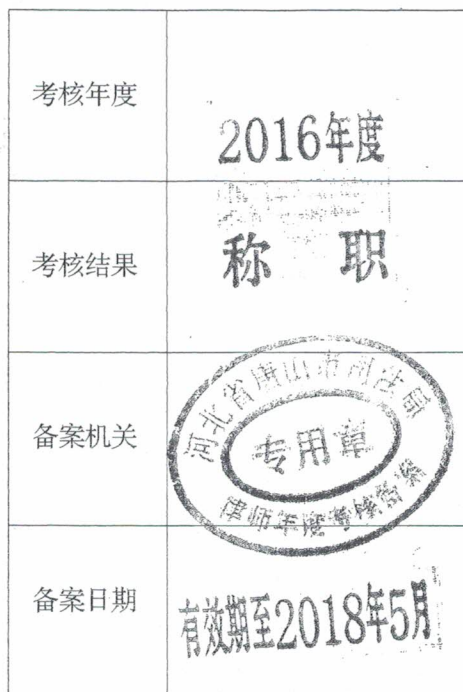 考核年度
2016年度
考核结果
称 职
备案机关
河北省唐山市司法局
专用章
律师年度考核备案
备案日期
有效期至2018年5月